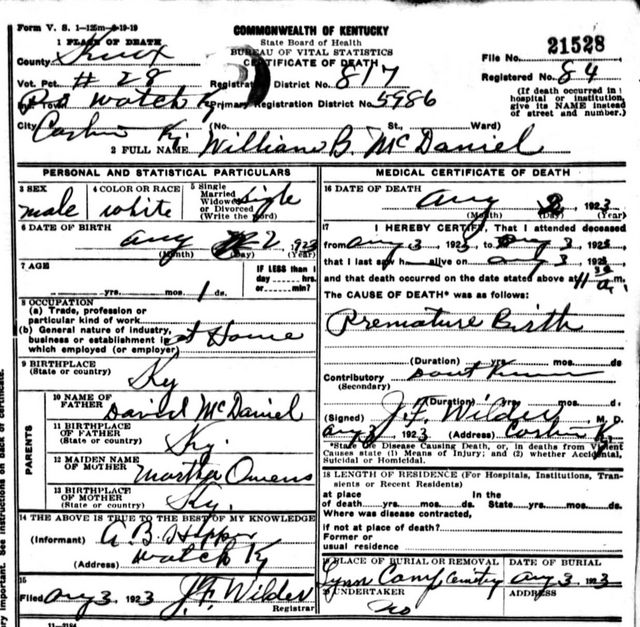 Form V. S. 1—125m—9-19-19
COMMONWEALTH OF KENTUCKY
State Board of Health
BUREAU OF VITAL STATISTICS
CERTIFICATE OF DEATH
1 PLACE OF DEATH
County Knox
File No. 21528
Vot. Pct. # 28
Registration District No. 817
Registered No. 84
watch Ky
Primary Registration District No. 5986
(If death occurred in hospital or institution, give its NAME instead of street and number.)
City Corbin Ky. (No. St., Ward)
2 FULL NAME William B. McDaniel
PERSONAL AND STATISTICAL PARTICULARS
3 SEX
male
4 COLOR OR RACE
white
5 Single
Married
Widowed
or Divorced
(Write the word)
single
6 DATE OF BIRTH
Aug 2, 1923
(Month) (Day) (Year)
7 AGE
yrs. mos. 1 ds.
IF LESS than 1
day hrs.
or min?
8 OCCUPATION
(a) Trade, profession or
particular kind of work
(b) General nature of industry,
business or establishment in
which employed (or employer)
at Home
9 BIRTHPLACE
(State or country)
Ky
PARENTS
10 NAME OF
FATHER
David McDaniel
11 BIRTHPLACE
OF FATHER
(State or country)
Ky.
12 MAIDEN NAME
OF MOTHER
Martha Owens
13 BIRTHPLACE
OF MOTHER
(State or country)
Ky.
14 THE ABOVE IS TRUE TO THE BEST OF MY KNOWLEDGE
(Informant) A. B.
(Address) watch Ky
15
Filed Aug 3, 1923 J. F. Wilder
Registrar
11—3184
MEDICAL CERTIFICATE OF DEATH
16 DATE OF DEATH
Aug 3, 1923
(Month) (Day) (Year)
17 I HEREBY CERTIFY, That I attended deceased
from Aug 3, 1923, to Aug 3, 1923
that I last saw h alive on Aug 3, 1923
and that death occurred on the date stated above at 11 30 a m.
The CAUSE OF DEATH* was as follows:
Premature Birth
(Duration) yrs. mos. ds
Contributory dont Know
(Secondary)
(Duration) yrs. mos. ds.
(Signed) J. F. Wilder M. D.
Aug 3, 1923 (Address) Corbin Ky
*State the Disease Causing Death, or, in deaths from Violent
Causes state (1) Means of Injury; and (2) whether Accidental,
Suicidal or Homicidal.
18 LENGTH OF RESIDENCE (For Hospitals, Institutions, Transients or Recent Residents)
at place In the
of death yrs. mos. ds. State yrs. mos. ds.
Where was disease contracted,
if not at place of death?
Former or
usual residence
19 PLACE OF BURIAL OR REMOVAL
Lynn Camp Cemetry
DATE OF BURIAL
Aug 3, 1923
20 UNDERTAKER
no
ADDRESS